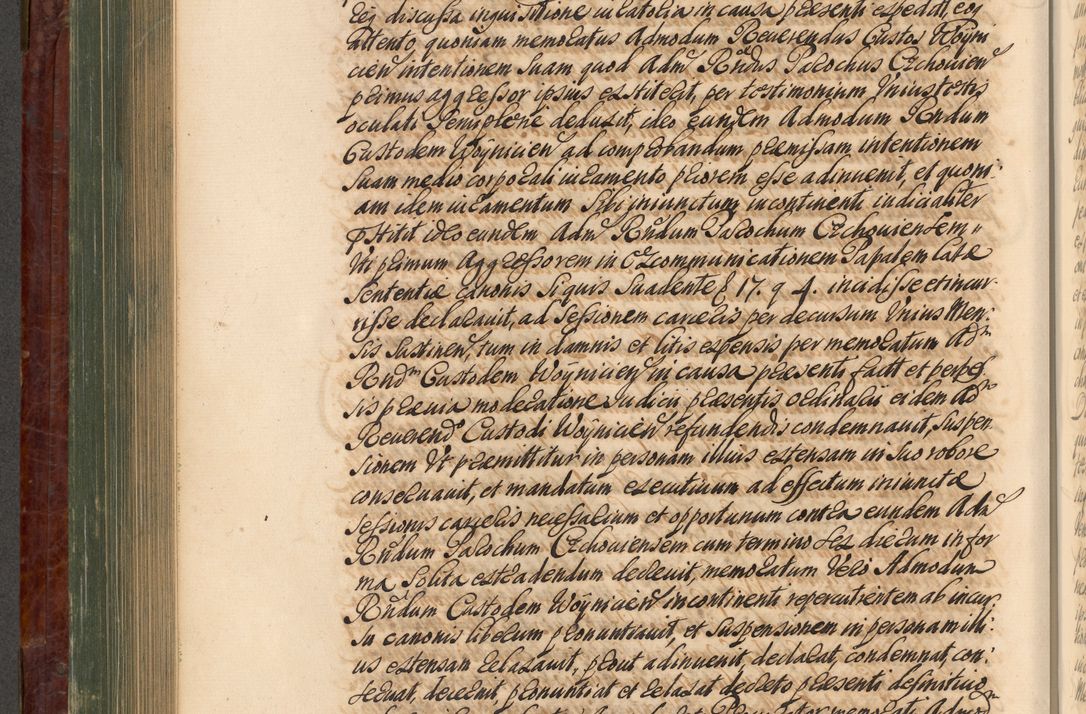 Eey discussa inquisitione iuratoria in causa præsenti expedit, eoq
attento, quoniam memoratus Admodum Reuerendus Custos Woyni
cien intentionem suam quod Adm Rndus Parochus Czchouien
primus aggressor ipsius exstiterit, per testimonium Vnius testis
oculati Semiplene deduxit, ideo eundem Admodum Rndum
Custodem Woynicien ad comprobandum præmissam intentionem
suam medio corporali iuramento priorem esse adinuenit, et quoni
am idem iuramentum sibi iniunctum incontinenti iudicialiter
præstitit ideo eundem Adm Rndum Parochum Czchouiensem
Vti primum Aggressorem in Excommunicationem Papalem latæ
Sententiæ canonis Siquis Suadente 17. q 4. incidisse et incur
risse declarauit, ad sessionem carceris per decursum Vnius Men:
sis sustinen, tum in damnis et litis expensis per memoratum Ad
Rndm Custodem Woynicien in causa præsenti factt et perpes
sis præuia moderatione Iudicii præsentis ordinarii eidem Ad
Reuerend Custodi Woynicien refundendis condemnauit, Suspen
sionem Vt præmittitur in personam illius extensam in suo robore
conseruauit, et mandatum executiuum ad effectum iniunctæ
sessionis carceris necessarium et opportunum contra eundem Adm
Rndum Parochum Czchouiensem cum termino sex dierum in for
ma solita extradendum decreuit, memoratum Vero Admodum
Rndum Custodem Woynicien incontinenti repercutientem ab incur
su canonis liberum pronuntiauit, et Suspensionem in personam illi:
us extensam relaxauit, prout adinuenit, declarat, condemnat, con:
seruat, decernit, pronuntiat et relaxat decreto præsenti definitiuo
memorati Admod